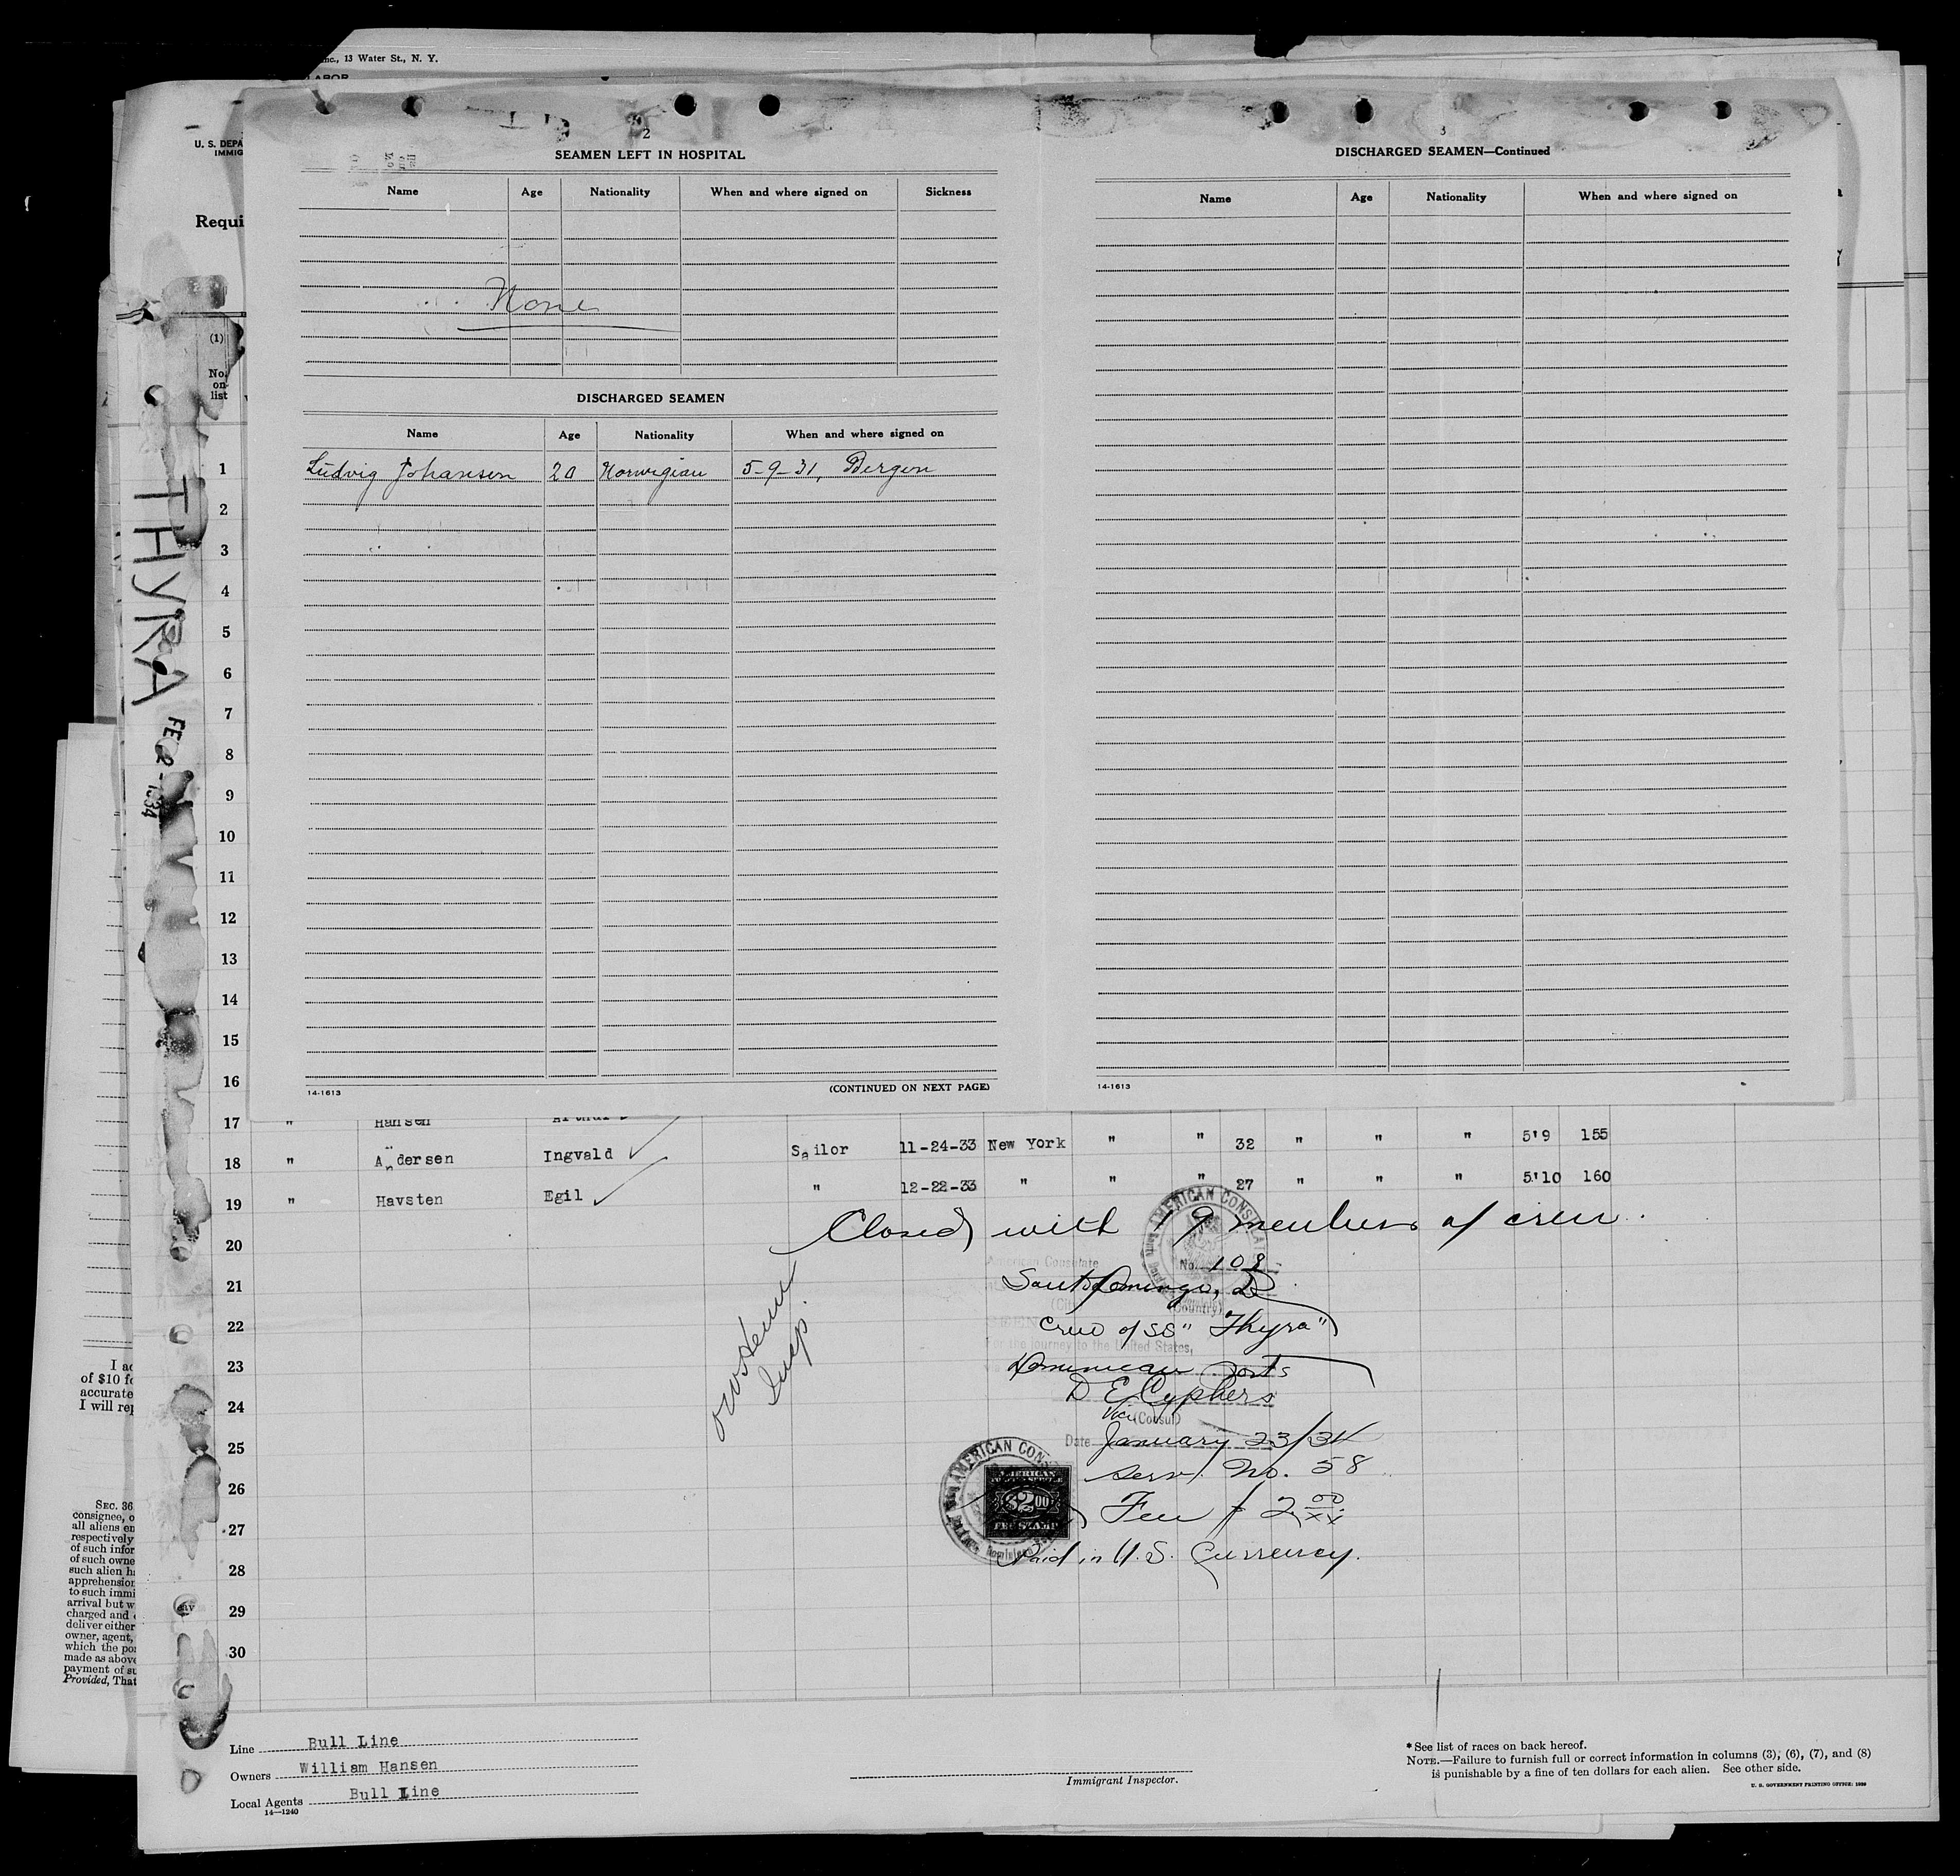 Inc., 13 Water St., N. Y.
LABOR
U. S. DEPA
IMMIG
Requi
(1)
No.
on
list
THYRA
FE 2 - 1934
2
SEAMEN LEFT IN HOSPITAL
Name Age Nationality When and where signed on Sickness
None
DISCHARGED SEAMEN
Name Age Nationality When and where signed on
Ludvig Johansen 20 Norwegian 5-9-31, Bergen
14-1613 (CONTINUED ON NEXT PAGE)
3
DISCHARGED SEAMEN—Continued
Name Age Nationality When and where signed on
14-1613
1
2
3
4
5
6
7
8
9
10
11
12
13
14
15
16
17 " Hansen Arthur
18 " Andersen Ingvald Sailor 11-24-33 New York " " 32 " " " 5'9 155
19 " Havsten Egil " 12-22-33 " " " 27 " " " 5'10 160
20
21
22
23
24
25
26
27
28
29
30
Closed with 19 members of crew.
AMERICAN CONSULA
American Consulate No. 108
Santo Domingo, D
(Country)
Crew of SS "Thyra"
For the journey to the United States,
Dominican Ports
D E Cyphers
Vice (Consul)
Date January 23/34
Serv. No. 58
Fee $ 2 00/xx
Paid in U. S. Currency.
AMERICAN CONS
AMERICAN
$2.00
FEE STAMP
Insp.
I ac
of $10 fo
accurate
I will rep
SEC. 36
consignee, o
all aliens en
respectively
of such infor
of such owne
such alien ha
apprehension
to such immi
arrival but w
charged and
deliver either
owner, agent,
which the por
made as above
payment of su
Provided, That
Line Bull Line
Owners William Hansen
Local Agents Bull Line
14—1240
Immigrant Inspector.
* See list of races on back hereof.
NOTE.—Failure to furnish full or correct information in columns (3), (6), (7), and (8)
is punishable by a fine of ten dollars for each alien. See other side.
U. S. GOVERNMENT PRINTING OFFICE: